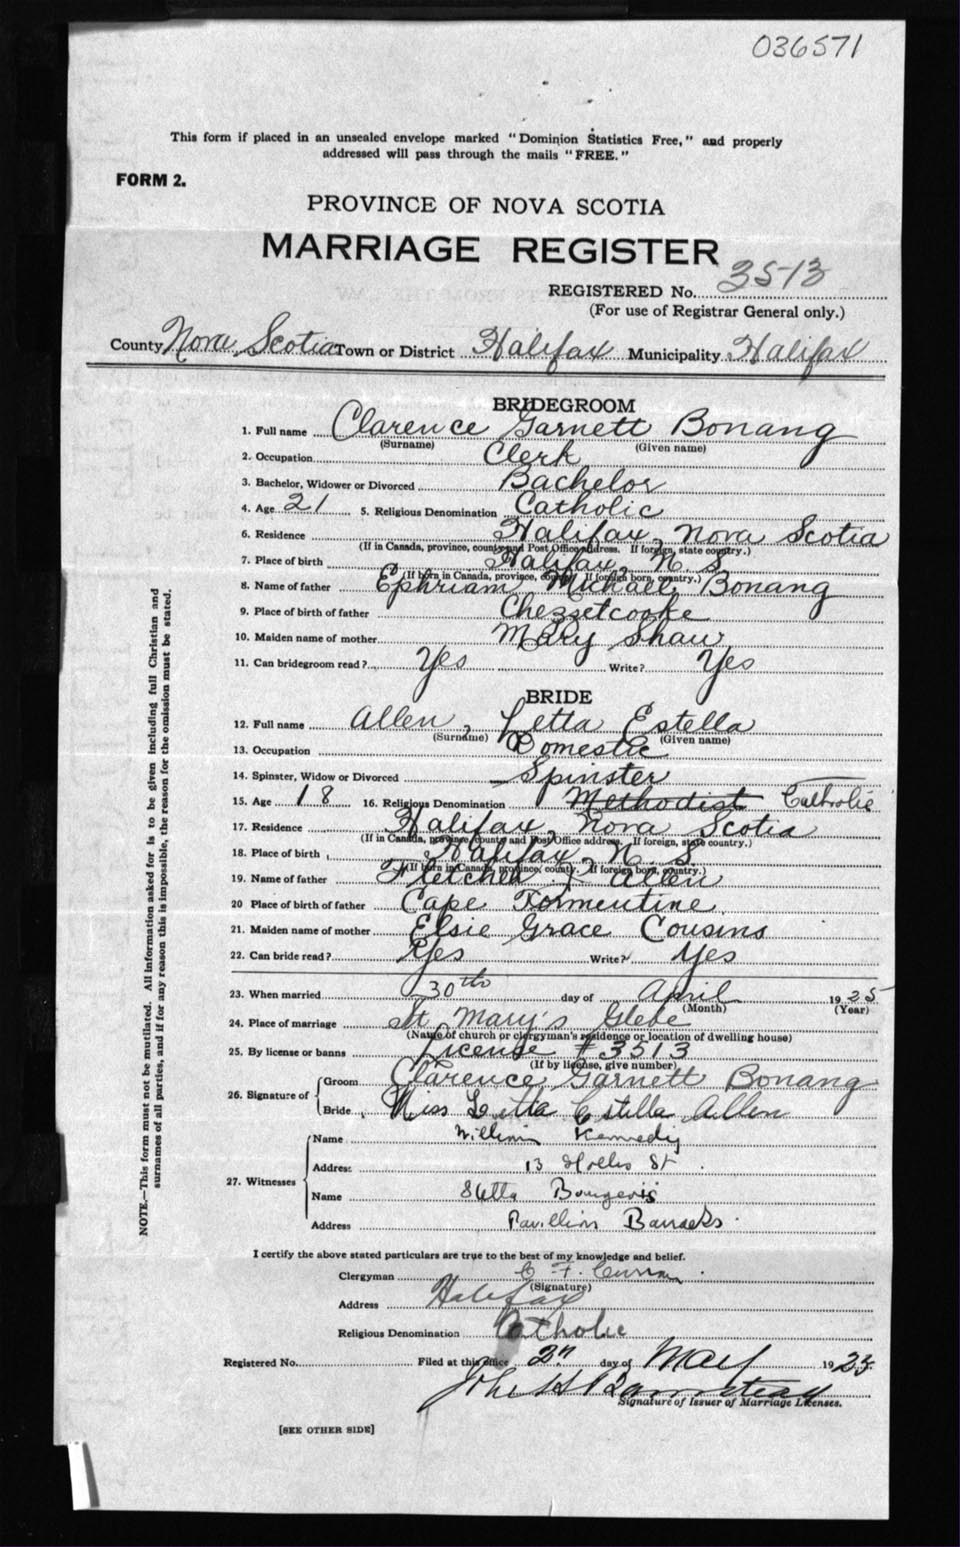 036571
This form if placed in an unsealed envelope marked "Dominion Statistics Free," and properly
addressed will pass through the mails "FREE."
FORM 2.
PROVINCE OF NOVA SCOTIA
MARRIAGE REGISTER
REGISTERED No. 3513
(For use of Registrar General only.)
County Nova Scotia Town or District Halifax Municipality Halifax
BRIDEGROOM
1. Full name Clarence Garnett Bonang
(Surname) (Given name)
2. Occupation Clerk
3. Bachelor, Widower or Divorced Bachelor
4. Age 21 5. Religious Denomination Catholic
6. Residence Halifax, Nova Scotia
(If in Canada, province, county and Post Office address. If foreign, state country.)
7. Place of birth Halifax, N. S.
(If born in Canada, province, county. If foreign born, country.)
8. Name of father Ephriam Michael Bonang
9. Place of birth of father Chezzetcooke
10. Maiden name of mother Mary Shaw
11. Can bridegroom read? Yes Write? Yes
BRIDE
12. Full name Allen, Letta Estella
(Surname) (Given name)
13. Occupation Domestic
14. Spinster, Widow or Divorced Spinster
15. Age 18 16. Religious Denomination Methodist Catholic
17. Residence Halifax, Nova Scotia
(If in Canada, province, county and Post Office address. If foreign, state country.)
18. Place of birth Halifax, N. S.
(If born in Canada, province, county. If foreign born, country.)
19. Name of father Fletcher Allen
20 Place of birth of father Cape Tormentine
21. Maiden name of mother Elsie Grace Cousins
22. Can bride read? Yes Write? Yes
23. When married 30th day of April 1925
(Month) (Year)
24. Place of marriage St. Mary's Glebe
(Name of church or clergyman's residence or location of dwelling house)
25. By license or banns License #3513
(If by license, give number)
26. Signature of Groom Clarence Garnett Bonang
Bride Miss Letta Estella Allen
27. Witnesses
Name William Kennedy
Address 13 Hollis St.
Name Bourgeois
Address Pavillion Barracks.
I certify the above stated particulars are true to the best of my knowledge and belief.
Clergyman C. F. Curran
(Signature)
Address Halifax
Religious Denomination Catholic
Registered No. Filed at this office day of May 19
Signature of Issuer of Marriage Licenses.
[SEE OTHER SIDE]
NOTE.—This form must not be mutilated. All information asked for is to be given including full Christian and
surnames of all parties, and if for any reason this is impossible, the reason for the omission must be stated.